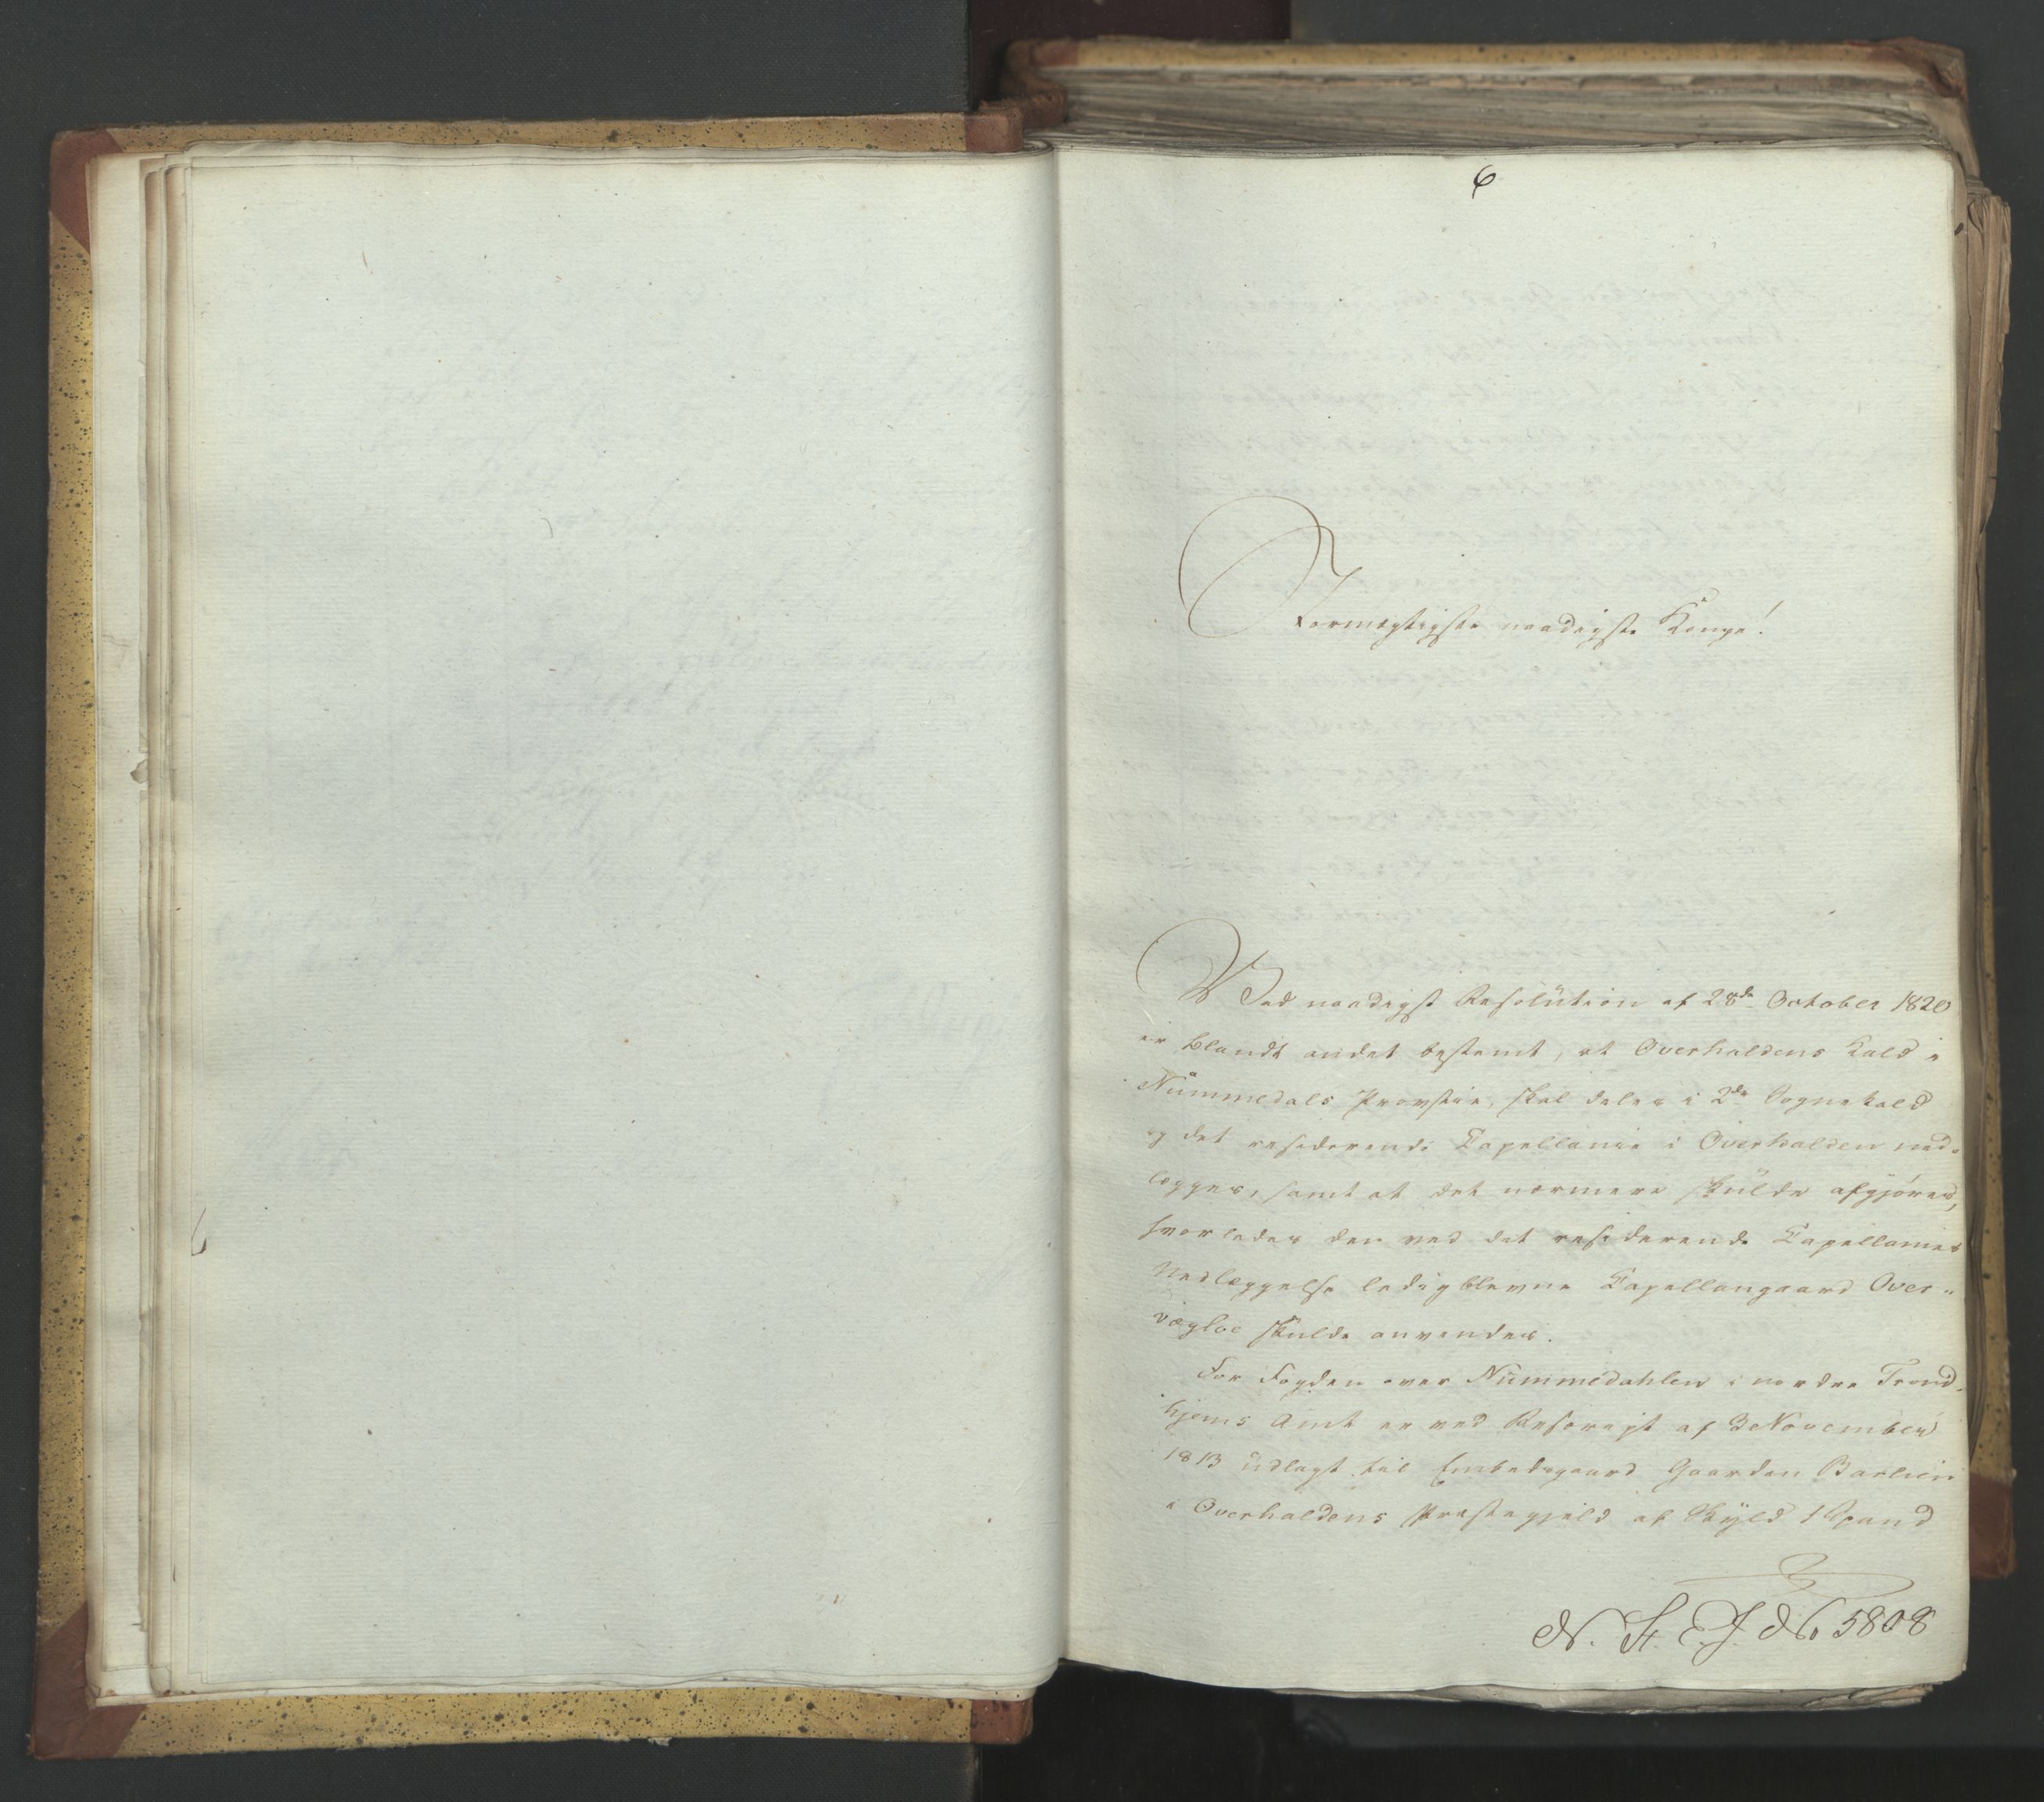 6
Stormægtigste naadigste Konge!
Ved naadigst Resolution af 28de October 1820
er blandt andet bestemt, at Overhaldens Kald i
Nummedals Provstie, skal deles i 2de Sognekald
og det residerende Capellanie i Overhalden ned-
lægges, samt at det nærmere skulde afgjøres,
hvorledes den ved det residerende Capellanies
Nedlæggelse ledigblevne Capellangaard Over-
vægloe skulde anvendes.
For Fogden over Nummedahlen i nordre Trond-
hjems Amt er ved Rescript af 3 November
1813 udlagt til Embedsgaard Gaarden Barlien
i Overhaldens Præstegjeld af Skyld 1 Spand
N. St. E. J. No 5808